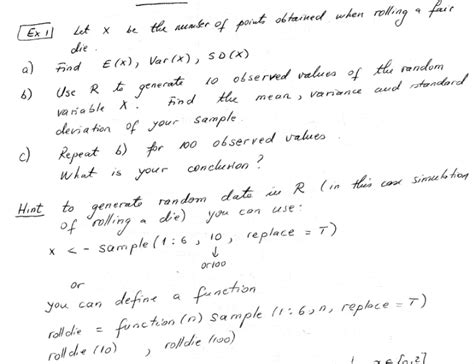 Ex 1 Let x be the number of points obtained when rolling a fair
die.
a) Find E(x), Var(x), SD(x)
b) Use R to generate 10 observed values of the random
variable X. Find the mean, variance and standard
deviation of your sample.
c) Repeat b) for 100 observed values.
What is your conclusion?
Hint to generate random data in R (in this case simulation
of rolling a die) you can use:
x <- sample(1:6, 10, replace = T)
↓
or 100
or
you can define a function
rolldie = function(n) sample(1:6, n, replace = T)
rolldie(10), rolldie(100)